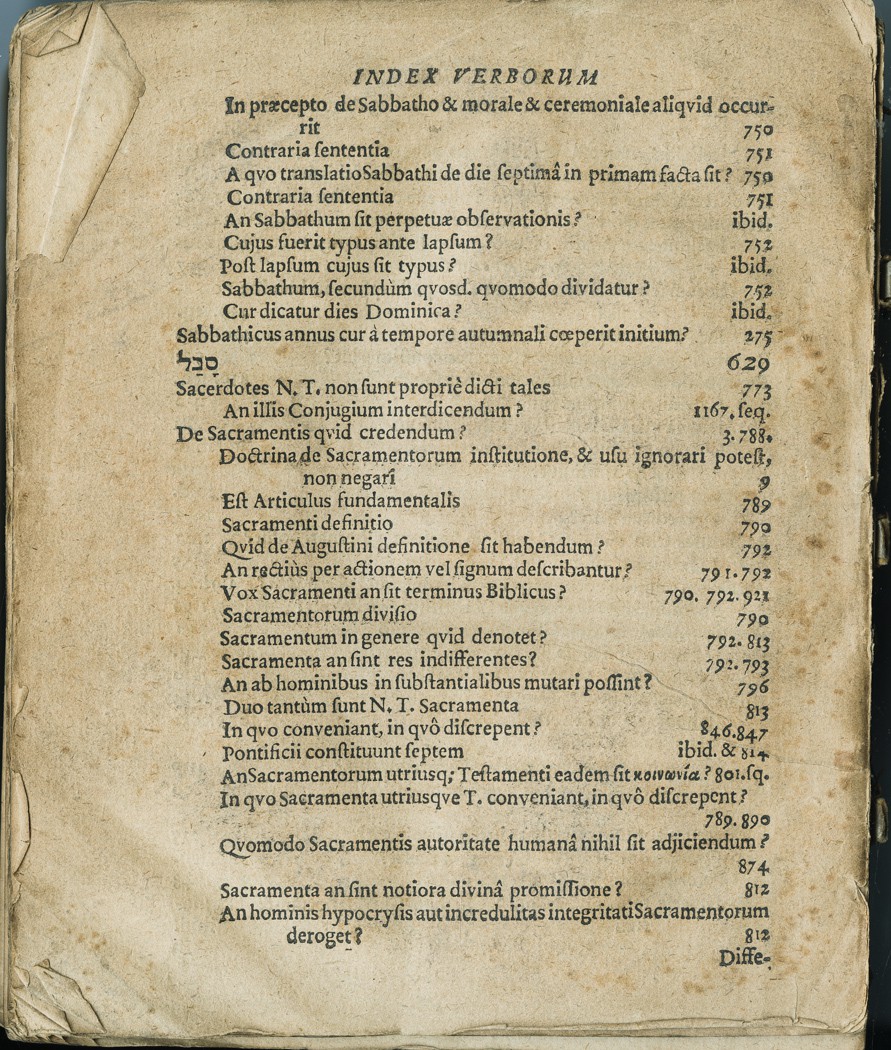 INDEX VERBORUM
In præcepto de Sabbatho & morale & ceremoniale aliqvid occur-
rit 750
Contraria ſententia 751
A qvo translatio Sabbathi de die ſeptimâ in primam facta ſit? 750
Contraria ſententia 751
An Sabbathum ſit perpetuæ obſervationis? ibid.
Cujus fuerit typus ante lapſum? 752
Poſt lapſum cujus ſit typus? ibid.
Sabbathum, ſecundùm qvosd. qvomodo dividatur? 752
Cur dicatur dies Dominica? ibid.
Sabbathicus annus cur à tempore autumnali cœperit initium? 275
סָבַל 629
Sacerdotes N. T. non ſunt propriè dicti tales 773
An illis Conjugium interdicendum? 1167. ſeq.
De Sacramentis qvid credendum? 3. 788.
Doctrina de Sacramentorum inſtitutione, & uſu ignorari poteſt,
non negari 9
Eſt Articulus fundamentalis 789
Sacramenti definitio 790
Qvid de Auguſtini definitione ſit habendum? 792
An rectiùs per actionem vel ſignum deſcribantur? 791. 792
Vox Sacramenti an ſit terminus Biblicus? 790. 792. 921
Sacramentorum diviſio 790
Sacramentum in genere qvid denotet? 792. 813
Sacramenta an ſint res indifferentes? 792. 793
An ab hominibus in ſubſtantialibus mutari poſſint? 796
Duo tantùm ſunt N. T. Sacramenta 813
In qvo conveniant, in qvô diſcrepent? 846. 847
Pontificii conſtituunt ſeptem ibid. & 814
An Sacramentorum utriusq; Teſtamenti eadem ſit κοινωνία? 801. ſq.
In qvo Sacramenta utriusqve T. conveniant, in qvô diſcrepent?
789. 890
Qvomodo Sacramentis autoritate humanâ nihil ſit adjiciendum?
874
Sacramenta an ſint notiora divinâ promiſſione? 812
An hominis hypocryſis aut incredulitas integritati Sacramentorum
deroget? 812
Diffe-